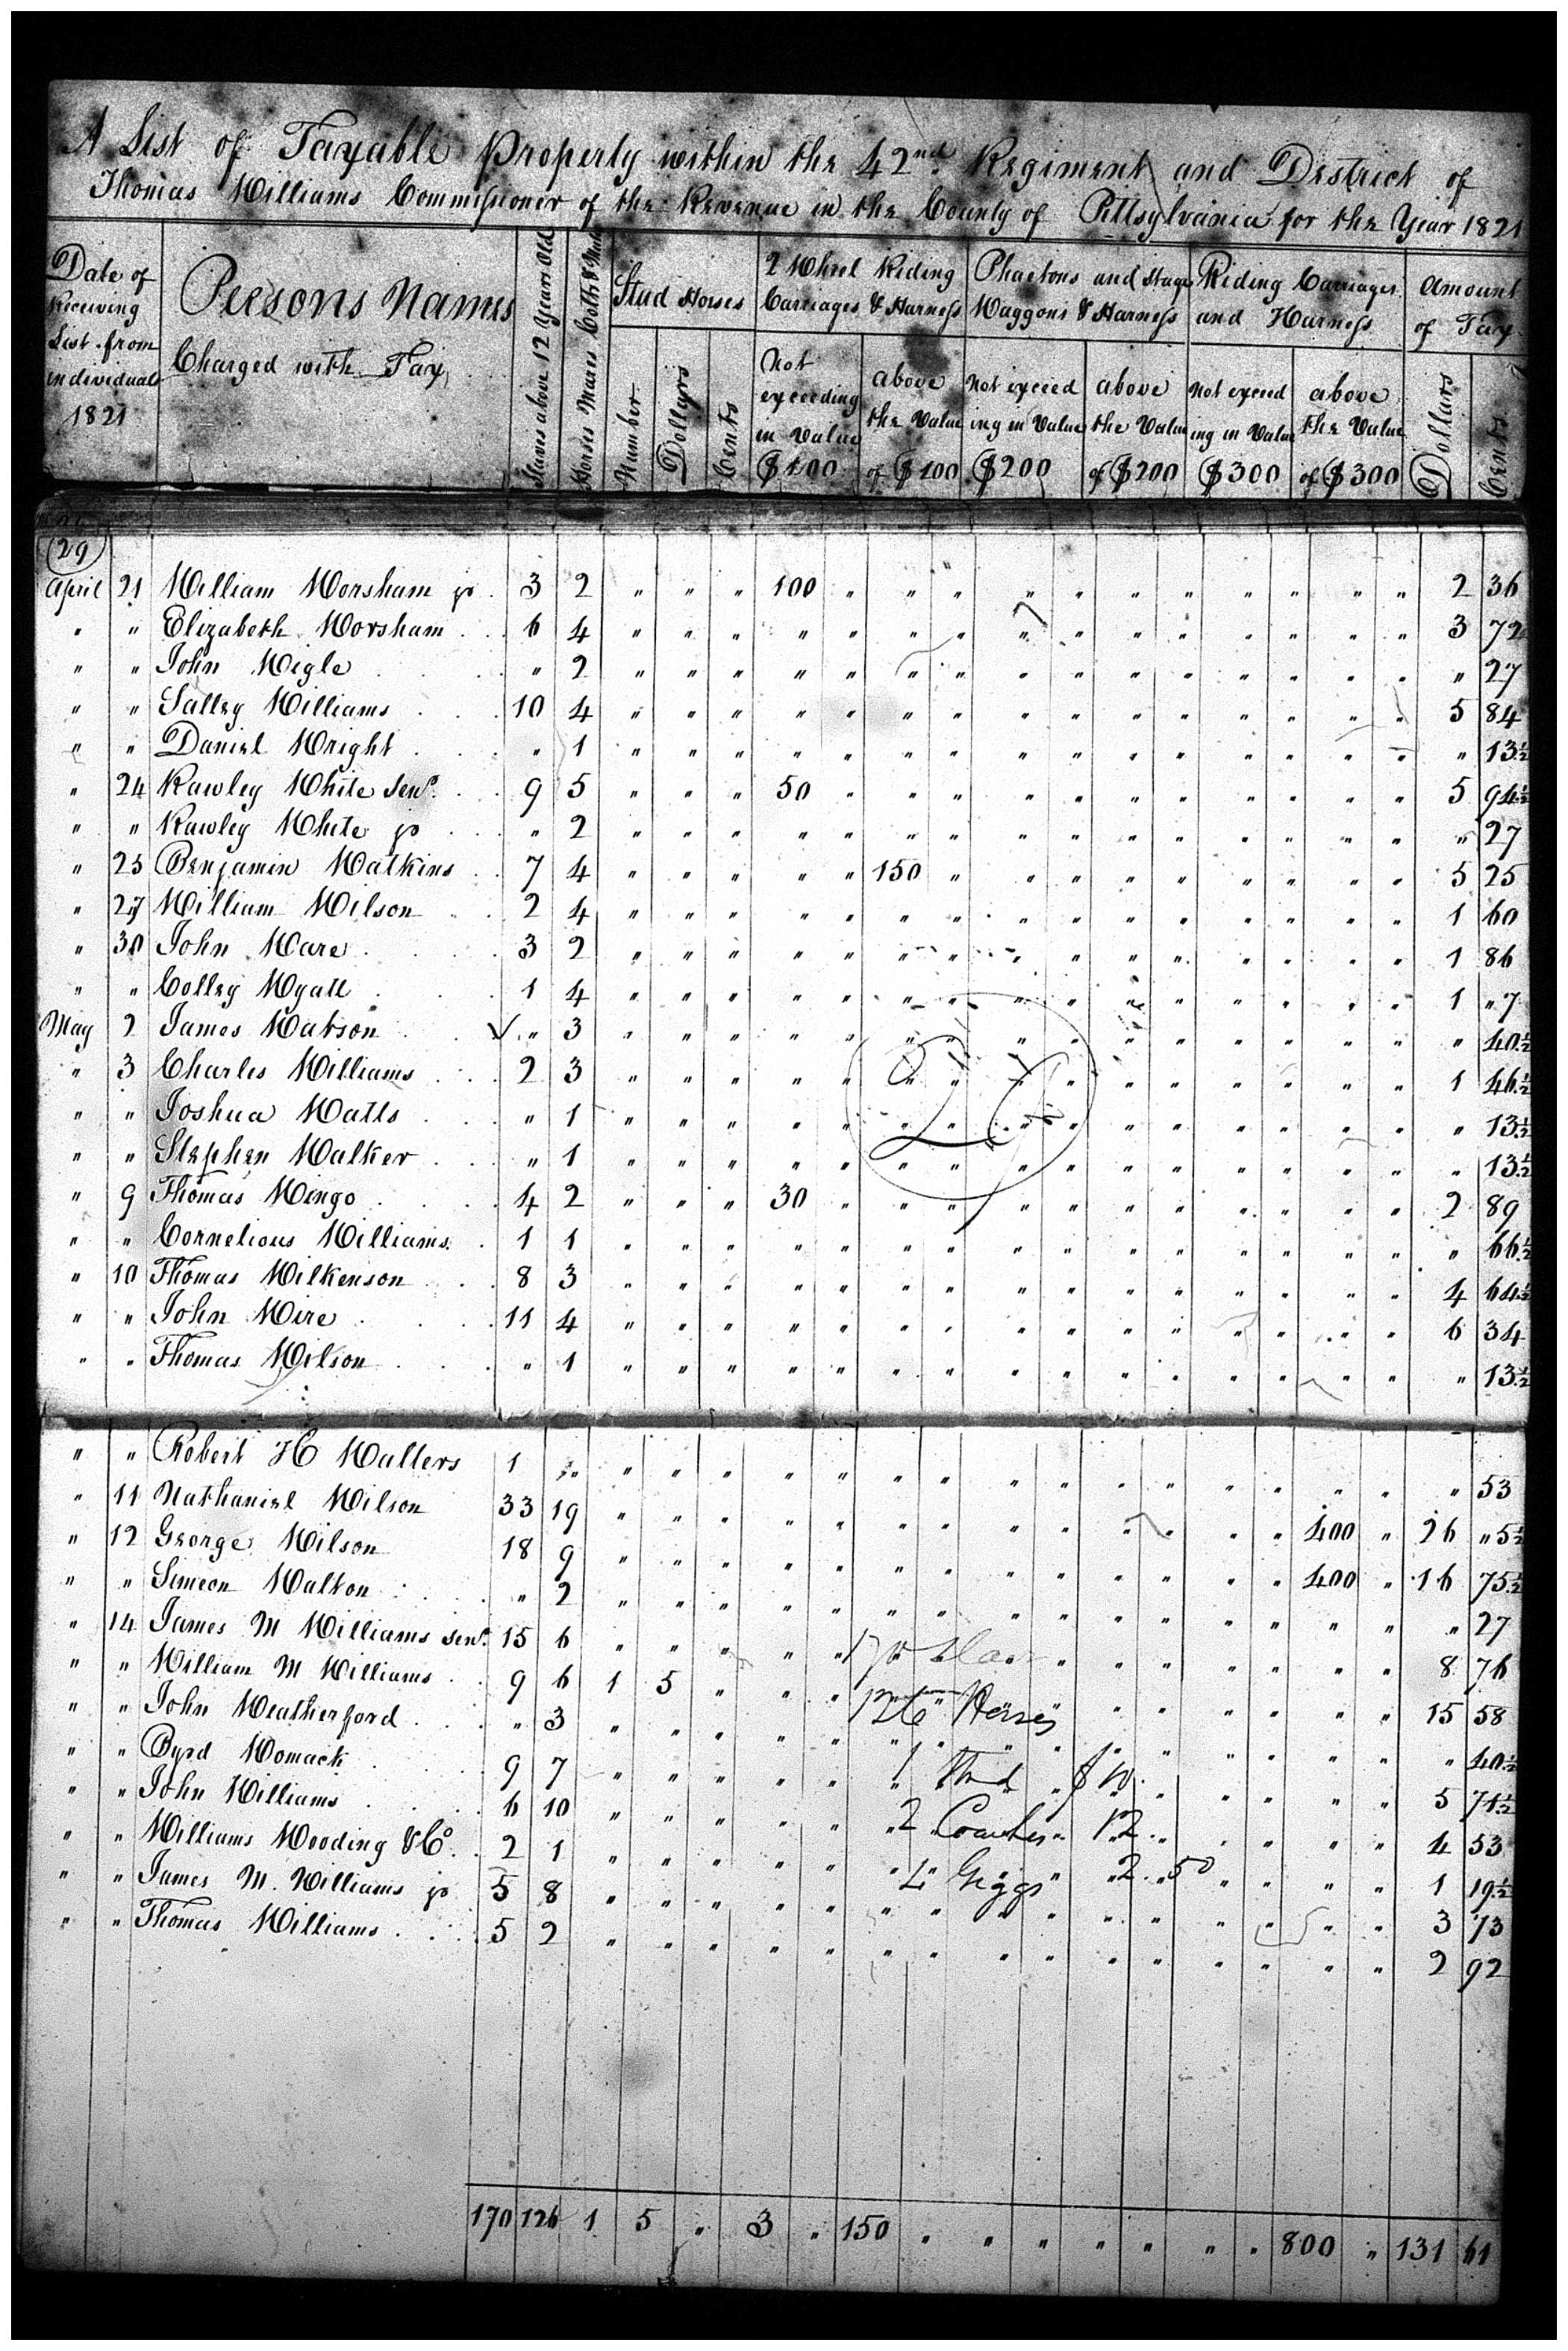 A List of Taxable Property within the 42nd Regiment and District of
Thomas Williams Commissioner of the Revenue in the County of Pittsylvania for the Year 1821
Date of Receiving List from individuals 1821
Persons Names Charged with Tax
Slaves above 12 Years Old
Horses Mares Colts & Mules
Stud Horses
Number Dollars Cents
2 Wheel Riding Carriages & Harness
Not exceeding in value $100
above the Value of $100
Phaetons and Stage Waggons & Harness
Not exceeding in Value $200
above the Value of $200
Riding Carriages and Harness
Not exceeding in Value $300
above the Value of $300
Amount of Tax
Dollars Cents
29
April 21 William Worsham jr 3 2 " " " 100 " " " " " " " " " " " 2 36
" " Elizabeth Worsham 6 4 " " " " " " " " " " " " " " " 3 72
" " John Wigle " 2 " " " " " " " " " " " " " " " " 27
" " Salley Williams 10 4 " " " " " " " " " " " " " " " 5 84
" " Daniel Wright " 1 " " " " " " " " " " " " " " " " 13½
" 24 Rawley White Senr. 9 5 " " " 50 " " " " " " " " " " " 5 94½
" " Rawley White jr " 2 " " " " " " " " " " " " " " " " 27
" 25 Benjamin Watkins 7 4 " " " " " 150 " " " " " " " " " 5 25
" 27 William Wilson 2 4 " " " " " " " " " " " " " " " 1 60
" 30 John Ware 3 2 " " " " " " " " " " " " " " " 1 86
" " Colley Wyatt 1 4 " " " " " " " " " " " " " " " 1 " 7
May 2 James Watson √ " 3 " " " " " " " " " " " " " " " " 40½
" 3 Charles Williams 2 3 " " " " " " " " " " " " " " " 1 46½
" " Joshua Watts " 1 " " " " " " " " " " " " " " " " 13½
" " Stephen Walker " 1 " " " " " " " " " " " " " " " " 13½
" 9 Thomas Wingo 4 2 " " " 30 " " " " " " " " " " " 2 89
" " Cornelious Williams 1 1 " " " " " " " " " " " " " " " " 66½
" 10 Thomas Wilkenson 8 3 " " " " " " " " " " " " " " " 4 64½
" " John Wire 11 4 " " " " " " " " " " " " " " " 6 34
" " Thomas Wilson " 1 " " " " " " " " " " " " " " " " 13½
" " Robert H Walters 1 " " " " " " " " " " " " " " " " " 53
" 11 Nathaniel Wilson 33 19 " " " " " " " " " " " " " 400 " 26 " 5½
" 12 George Wilson 18 9 " " " " " " " " " " " " " 400 " 16 75½
" " Simeon Walton " 2 " " " " " " " " " " " " " " " " 27
" 14 James M Williams Senr. 15 6 " " " " " " " " " " " " " " " 8 76
170
" " William M Williams 9 6 1 5 " " " " " " " " " " " " " 15 58
126 Horses
" " John Weatherford " 3 " " " " " " " " " " " " " " " " 40½
1 Stud $10
" " Byrd Womack 9 7 " " " " " " " " " " " " " " " 5 71½
2 Coaches 12
" " John Williams 6 10 " " " " " " " " " " " " " " " 4 53
4 Giggs 2.50
" " Williams Wooding & Co. 2 1 " " " " " " " " " " " " " " " 1 19½
" " James M. Williams jr 5 8 " " " " " " " " " " " " " " " 3 73
" " Thomas Williams 5 2 " " " " " " " " " " " " " " " 2 92
170 126 1 5 " 3 " 150 " " " " " " " 800 " 131 61